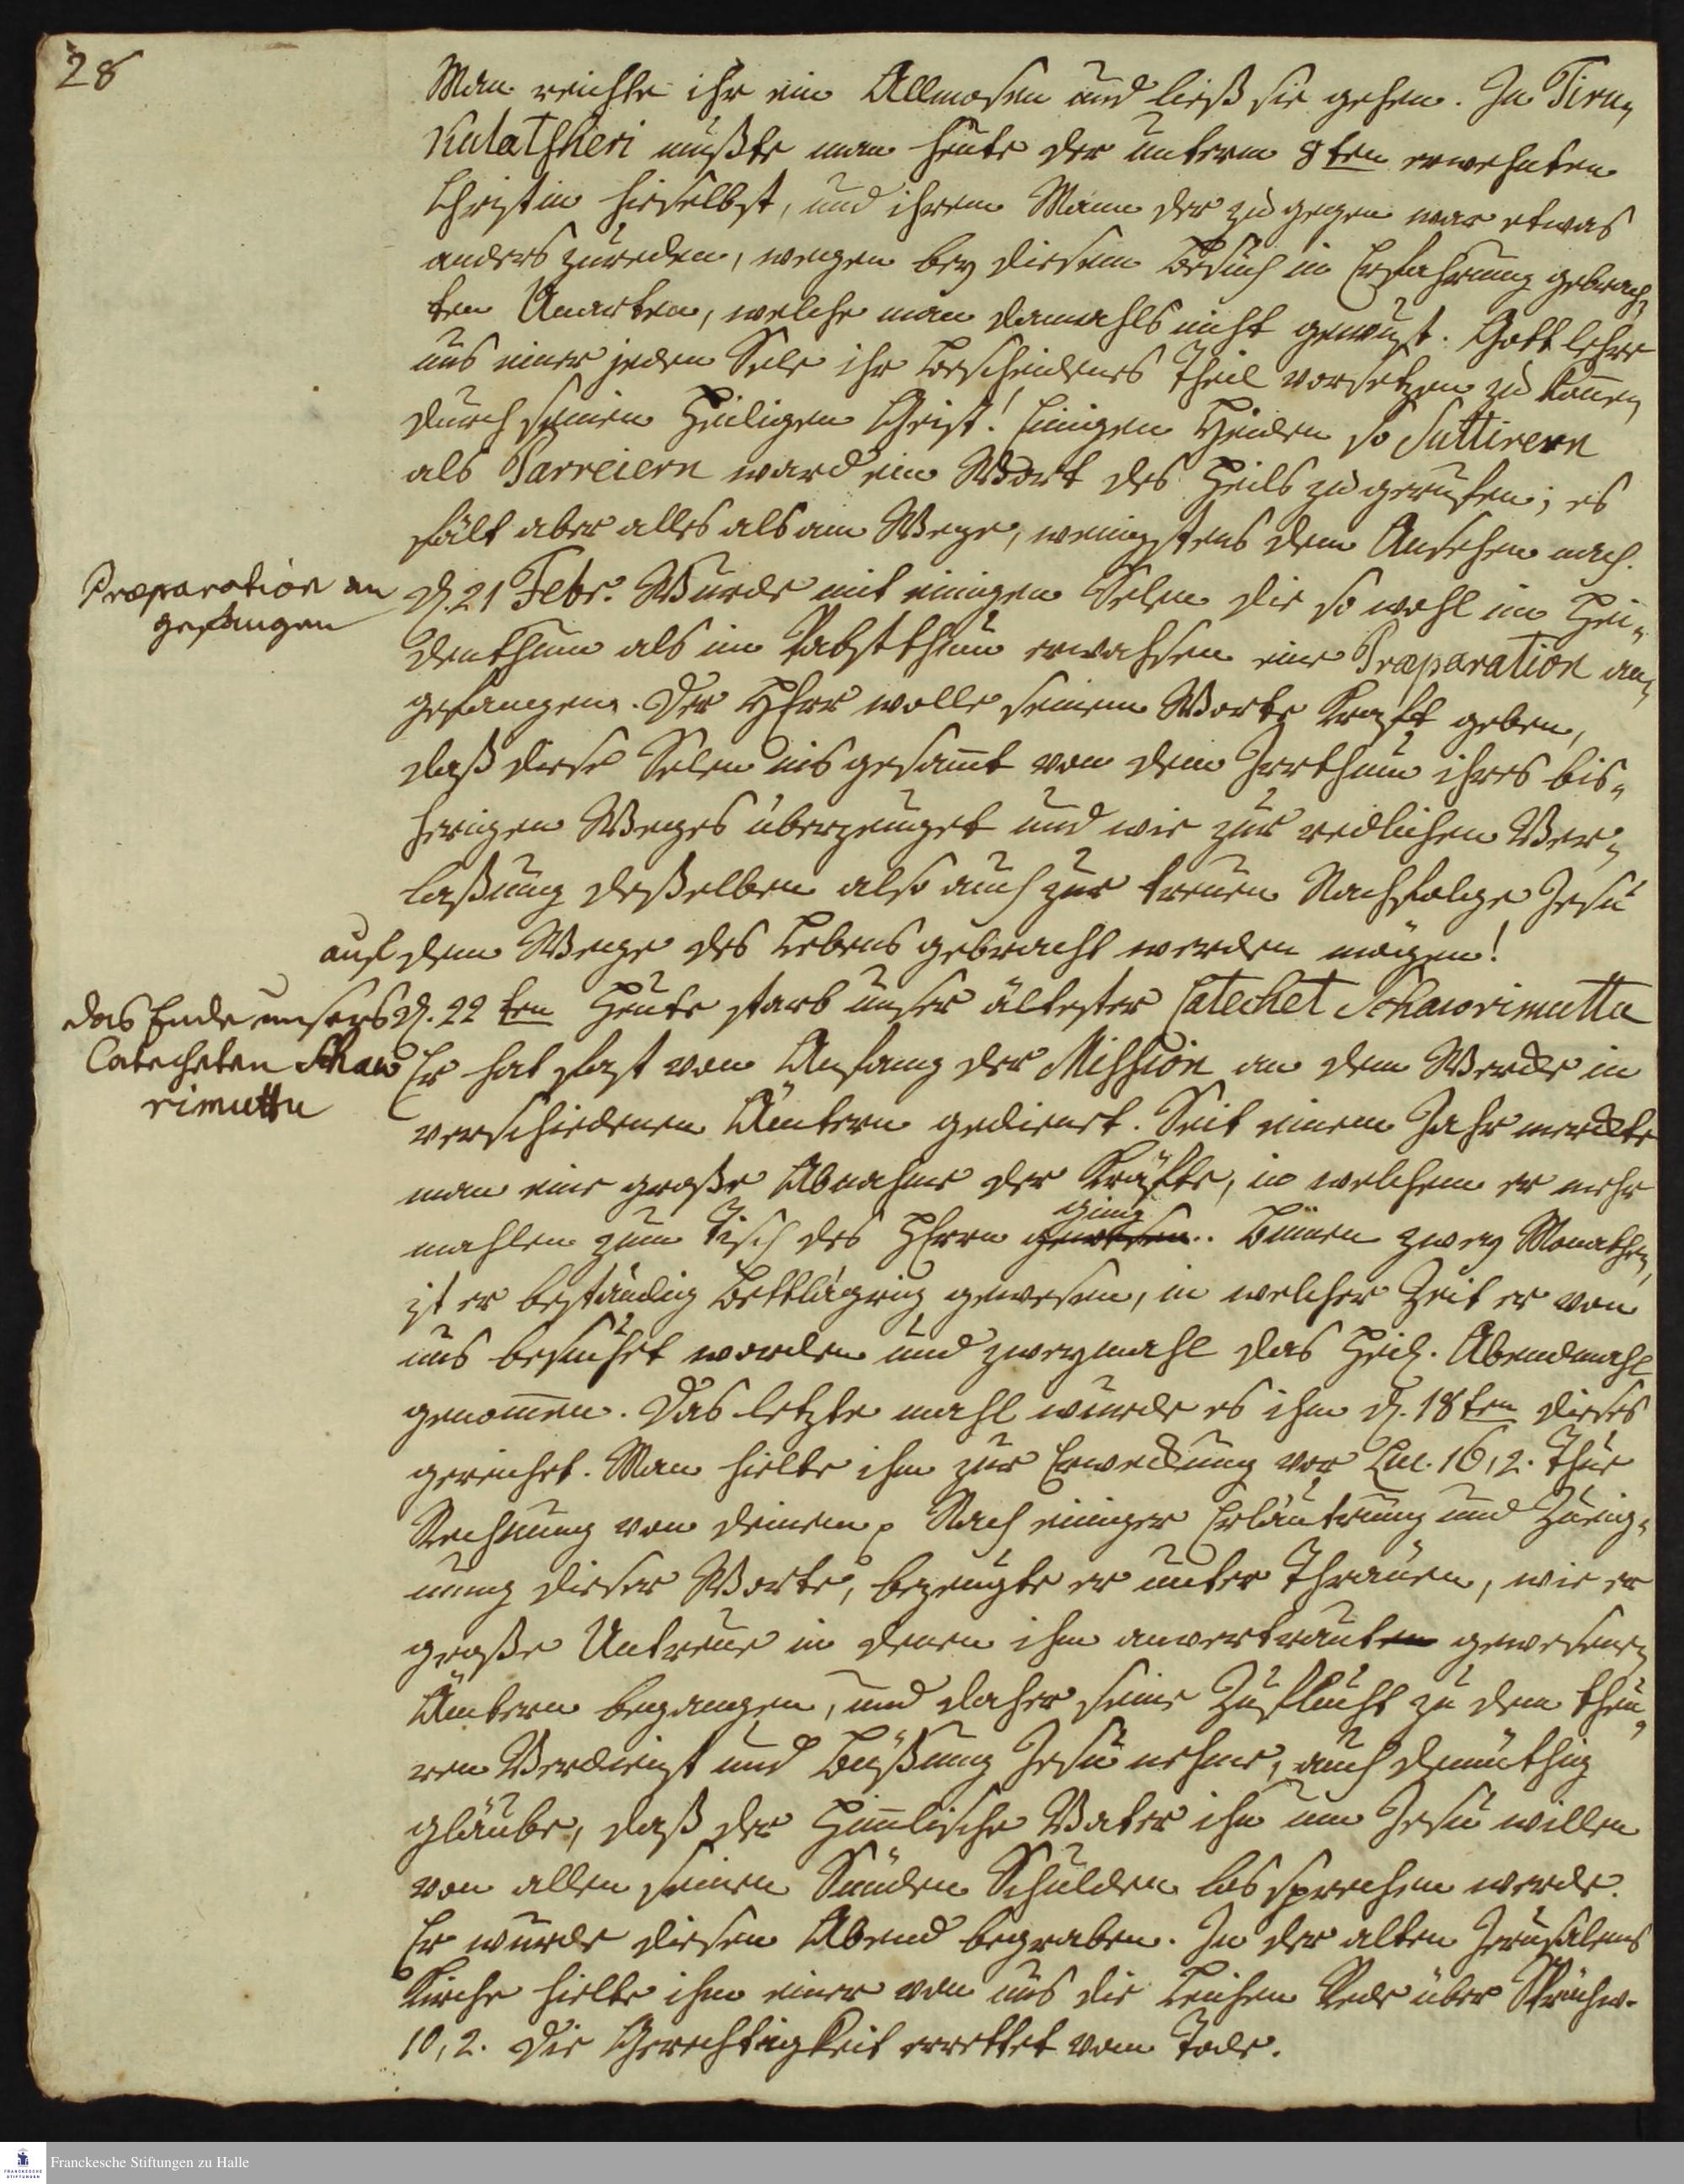 28
Man reichte ihr ein Allmosen und ließ sie gehen. In Tiru-
Kulatsheri mußte man heute der unterm 8ten erwehnten
Christin hieselbst, und ihrem Mann der zu gegen war etwas
anders zureden, wegen bey diesem Besuch in Erfahrung gebrach-
ten Unarten, welche man damahls nicht gewust. Gott lehre
uns einer jeden Sele ihr bescheidenes Theil vorsetzen zu können
durch seinen Heiligen Geist! Einigen Heiden so Suttirern
als Parreiern ward ein Wort des Heils zu geruffen; es
fält aber alles als am Wege, wenigstens dem Ansehen nach.
Præparation an
gefangen
d. 21 Febr. Wurde mit einigen Selen die so wohl im Hei-
denthum als im Pabstthum erwachsen eine Præparation an-
gefangen. Der HErr wolle seinem Worte Krafft geben,
daß diese Selen ins gesam̅t von dem Irrthum ihres bis-
herigen Weges überzeuget und wie zur redlichen Ver-
laßung deßelben also auch zur treuen Nachfolge Jesu
auf dem Wege des Lebens gebracht werden mögen!
das Ende unsers
Catecheten Schaw
rimuttu
d. 22 ten Heute starb unser ältester Catechet Schawrimuttu
Er hat fast von Anfang der Mission an dem Wercke in
verschiedenen Ämtern gedienet. Seit einem Jahr merckte
man eine große Abnahme der Kräfte, in welchem er mehr
mahlen zum Tisch des HErrn gewesen. ging
Binnen zwey Monathen
ist er beständig bettlägrig gewesen, in welcher Zeit er von
uns besucht worden und zweymahl das Heil. Abendmahl
genom̅en. Das letzte mahl wurde es ihm d. 18ten dieses
gereichet. Man hielte ihm zur Erweckung vor Luc. 16,2. Thue
Rechnung von deinem p Nach einiger Erläutrung und Zueig-
nung dieser Worte, bezeugte er unter Thränen, wie er
große Untreue in denen ihm anvertrauten gewesenen
Ämtern begangen, und daher seine Zuflucht zu dem theu-
ren Verdienst und Büßung Jesu nehme, auch demüthig
gläube, daß der Him̅lische Vater ihn um Jesu willen
von allen seinen Sünden Schulden los sprechen werde.
Er wurde diesen Abend begraben. In der alten Jerusalems
Kirche hielte ihm einer von uns die Leichen Rede über Sprüchw.
10,2. Die Gerechtigkeit errettet vom Tode.
FRANCKESCHE
STIFTUNGEN
Franckesche Stiftungen zu Halle